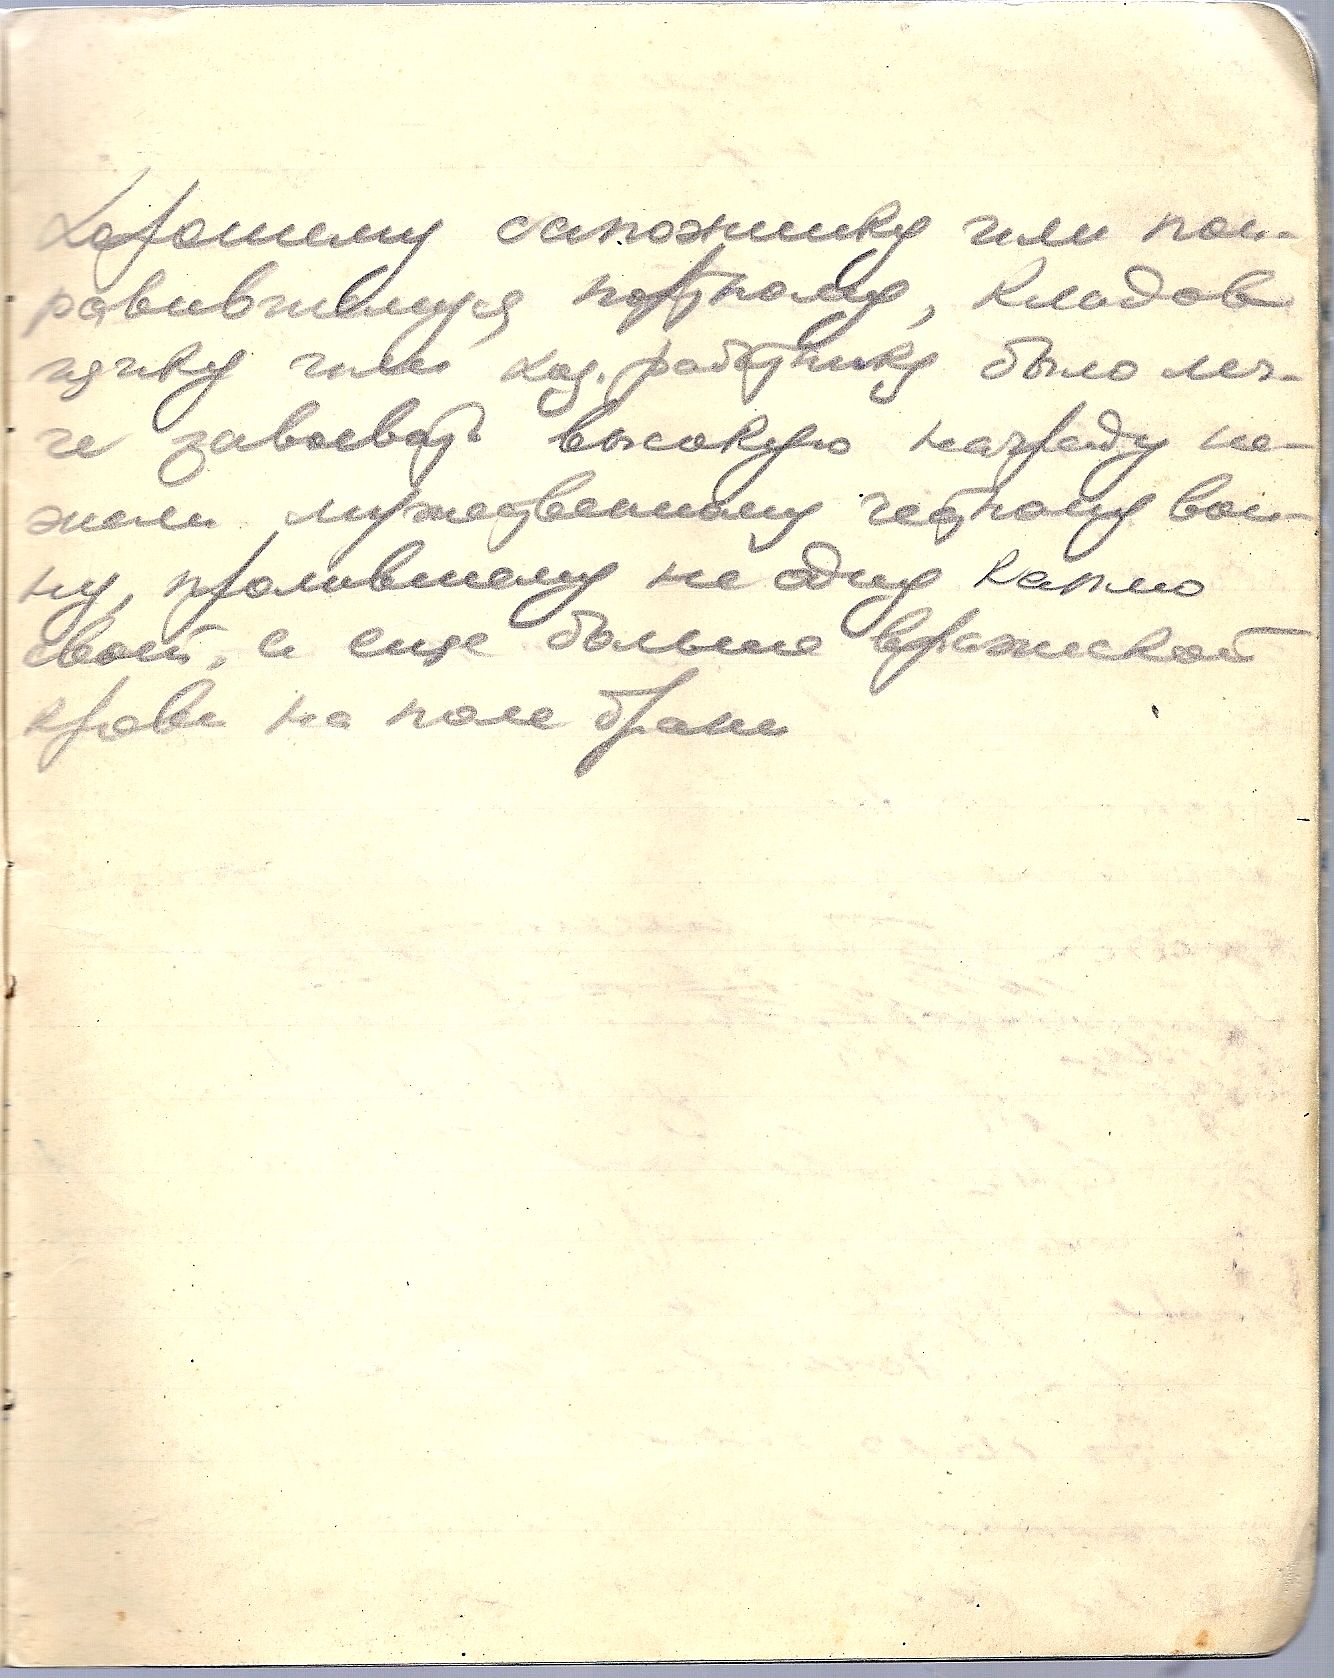 Хорошему сапожнику или пон-
равившемуся портному, кладов
щику или хоз. работнику было лег-
че завоевать высокую награду не-
жели мужественному честному вои-
ну, пролившему не одну каплю
своей, а еще больше вражеской
крови на поле брани